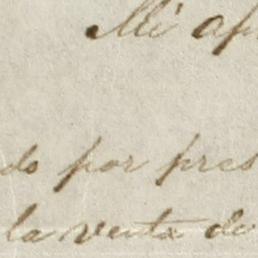 Mi ap
do por pres
la venta de